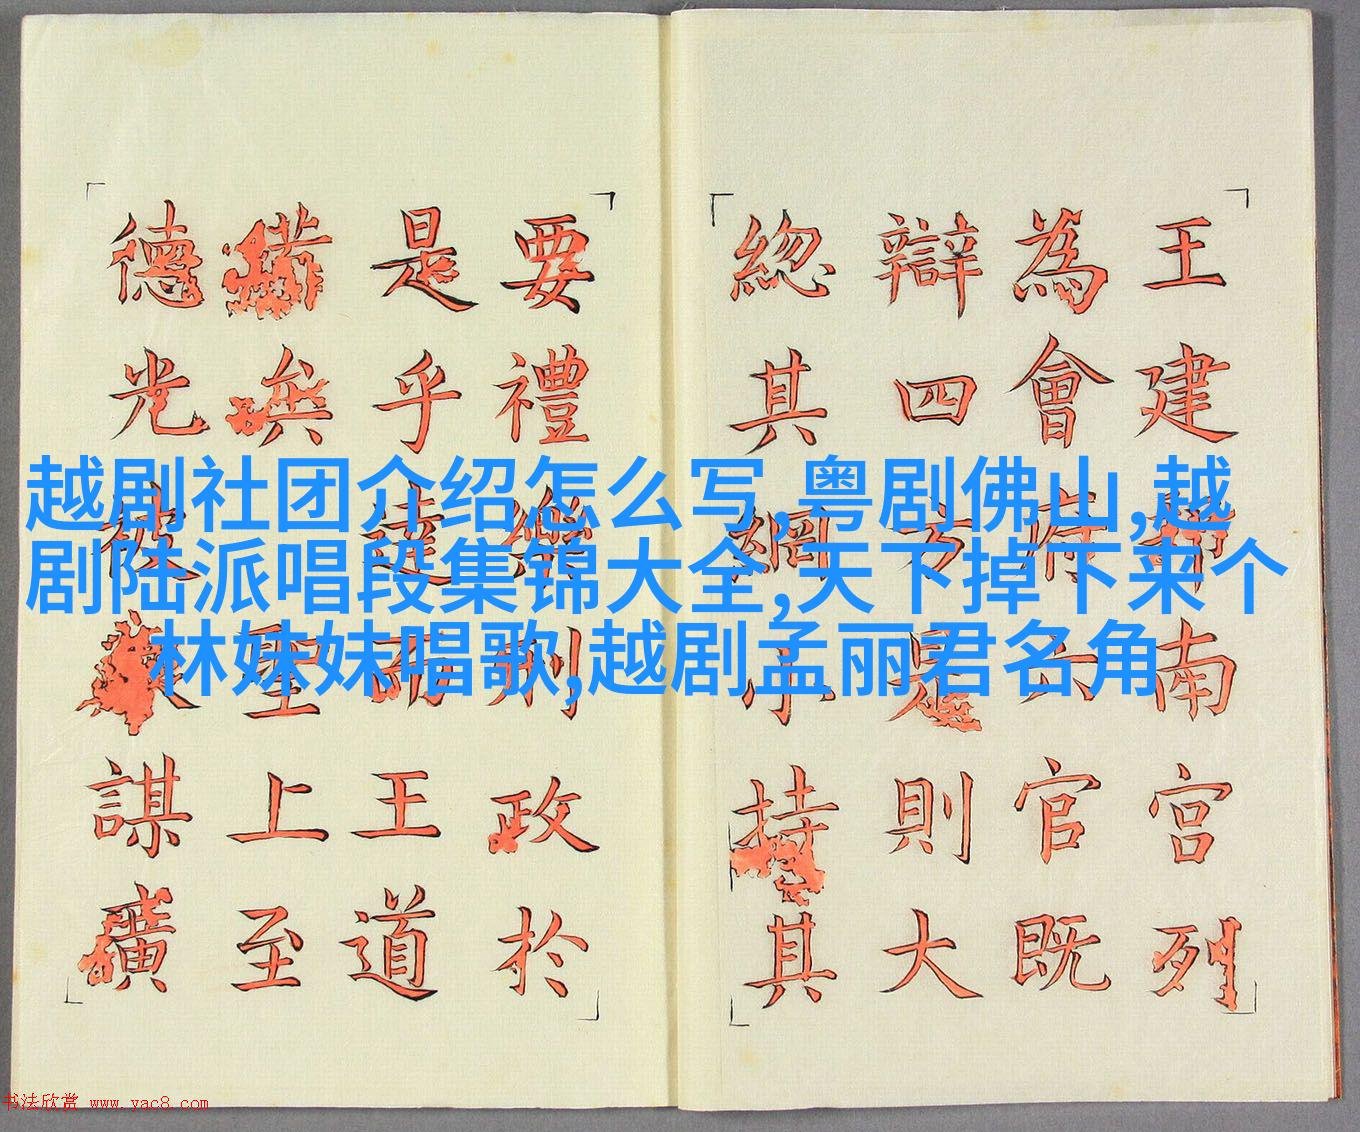 越剧社团介绍怎么写,粤剧佛山,越
剧陆派唱段集锦大全,天下掉下来个
林妹妹唱歌,越剧孟丽君名角
王建南宮列
為會府六官既
辯四方是則大
緫其綱小持其
要禮樂刑政於
是乎達而王道
備矣聖上至
德光被謀廣
书法欣赏 www.yac8.com